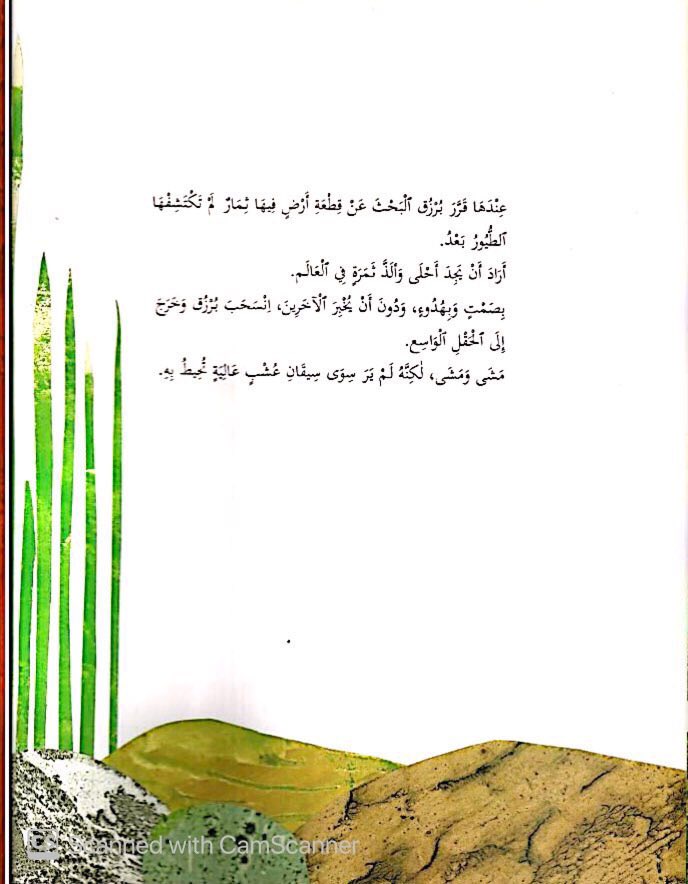 عِنْدَهَا قَرَّرَ بُرْزُق ٱلْبَحْثَ عَنْ قِطْعَةِ أَرْضٍ فِيهَا ثِمَارٌ لَمْ تَكْتَشِفْهَا
ٱلطُّيُورُ بَعْدُ.
أَرَادَ أَنْ يَجِدَ أَحْلَى وَأَلَذَّ ثَمَرَةٍ فِي ٱلْعَالَمِ.
بِصَمْتٍ وَبِهُدُوءٍ، وَدُونَ أَنْ يُخْبِرَ ٱلْآخَرِينَ، اِنْسَحَبَ بُرْزُق وَخَرَجَ
إِلَى ٱلْحَقْلِ ٱلْوَاسِعِ.
مَشَى وَمَشَى، لٰكِنَّهُ لَمْ يَرَ سِوَى سِيقَانِ عُشْبٍ عَالِيَةٍ تُحِيطُ بِهِ.
Scanned with CamScanner